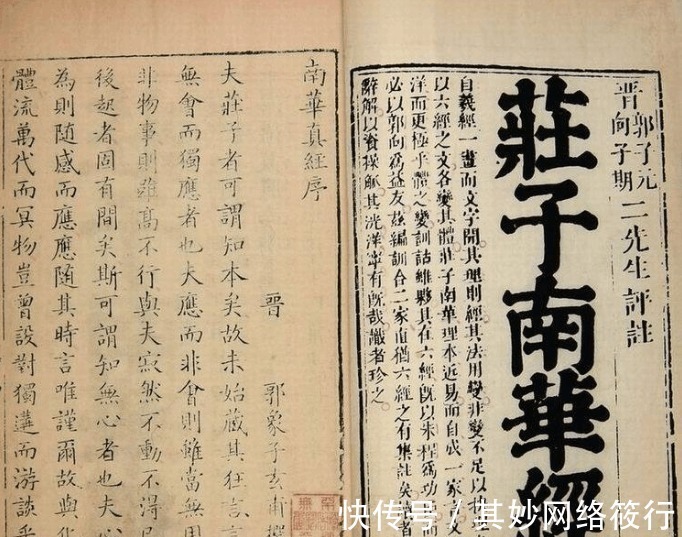 晋 郭子元
向子期
二先生評註
莊子南華經
自羲經一畫而文字開其理則經其法用變非變不足以
以六經之文各變其體莊子南華理本近易而自成一家文
洋而更極乎體之變訓詁雖夥其在六經旣以朱程為功
必以郭向為益友茲編訓合二家直猶六經之有集註矣
辭解以資操觚其洸洋寧有旣哉識者珍之
南華真經序
晋 郭象子玄甫撰
夫莊子者可謂知本矣故未始藏其狂言言
無會而獨應者也夫應而非會則雖當無用
非物事則雖高不行與夫寂然不動不得已
後起者固有間矣斯可謂知無心者也夫心
為則隨感而應應隨其時言唯謹爾故與化
體流萬代而冥物豈曾設對獨遘而游談乎
快传号 / 其妙网络筱行